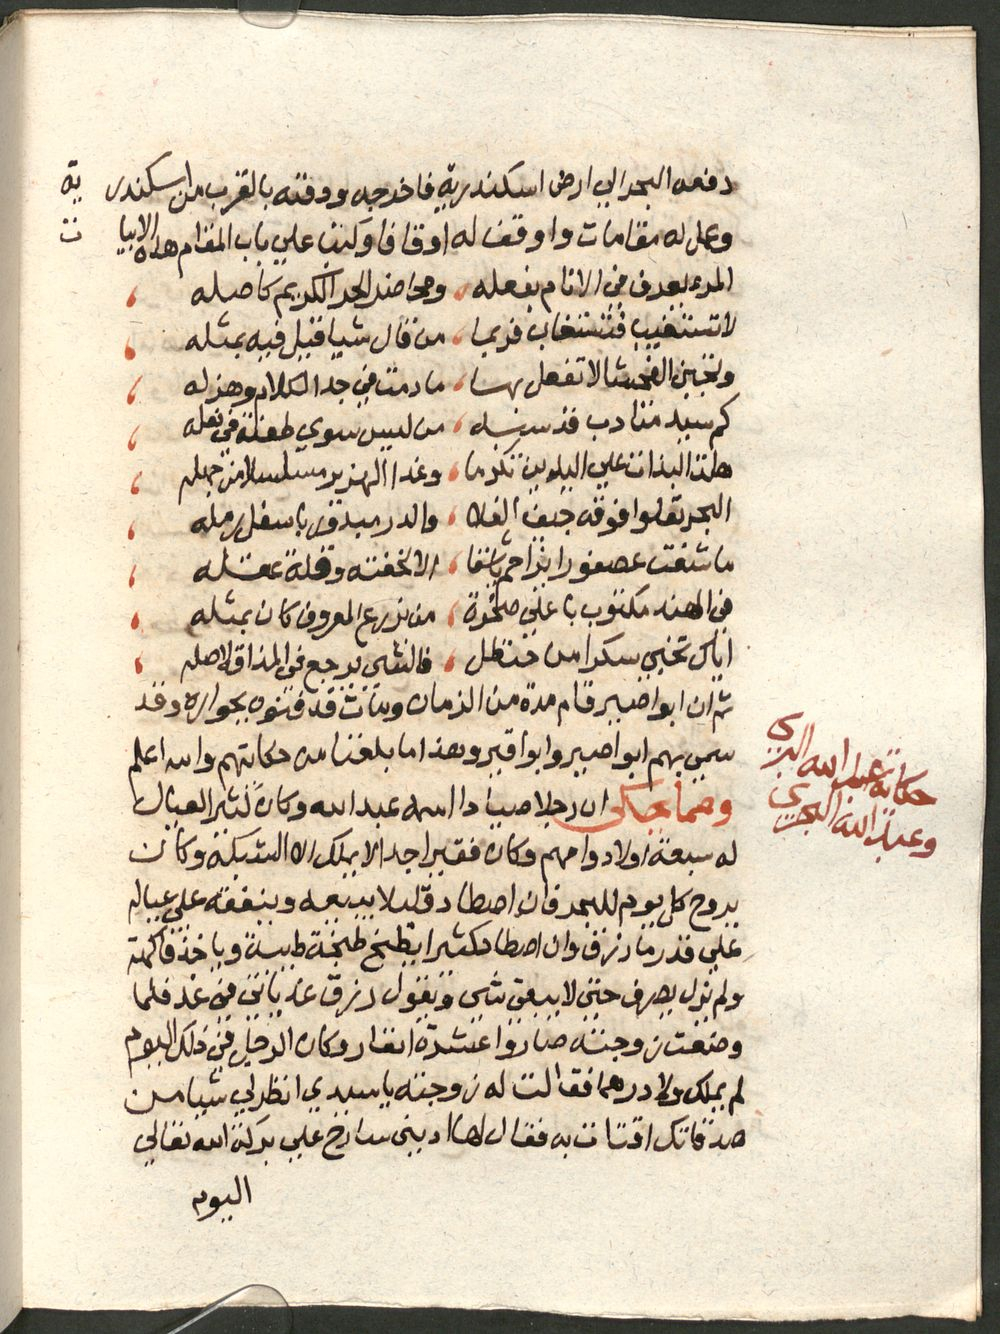 دفعه البحر الي ارض اسكندرية فاخرجه ودفنه بالقرب من اسكندرية
وعمل له مقامات واوقف له اوقافا وكتب علي باب المقام هذه الابيات
المرء يعرف في الانام بفعله ، وخصائل الحر الكريم كاصله ،
لا تستغيب فتستغاب فربما ، من قال شيا قيل فيه بمثله ،
وتجنب الفحشا لا تفعل بها ، ما دمت في جد الكلام وهزله ،
كم سيد متادب قد سبه ، من ليس يسوي طعنة في نعله
البحر تعلوا فوقه جيف الفلا ، والدر ميدقن باسفل رمله ،
ما شفت عصفورا يزاحم باشقا ، الا لخفته وقلة عقله ،
في الهند مكتوب باعلي صخرة ، من يزرع المعروف كان بمثله ،
اياك تجني سكرا من حنظل ، فالشي يرجع في المذاق لاصله ،
ثم ان ابوا صير قام مدة من الزمان ومات قدفنوه بجواره وقد
سمي بهم ابوا صير وابوا قير وهذا ما بلغنا من حكايتهم والله اعلم
ومما يحكي ان رجلا صيادا اسمه عبد الله وكان كثير العيال
حكاية عبد الله البري
وعبد الله البحري
له سبعة اولاد وامهم وكان فقيرا جدا لا يملك الا الشبكة وكان
يروح كل يوم للبحر فان اصطاد قليلا يبيعه وينفقه علي عياله
علي قدر ما رزق وان اصطاد كثيرا يطبخ طبخة طيبة وياخذ فاكهة
ولم يزل يصرف حتي لا يبقي شي ويقول رزق غد ياتي في غد فلما
وضعت زوجته صاروا عشرة انفار وكان الرجل في ذلك اليوم
لم يملك ولا درهما فقالت له زوجته يا سيدي انظر لي شيا من
صدقاتك اقتات به فقال لها اديني سارح علي بركة الله تعالي
اليوم